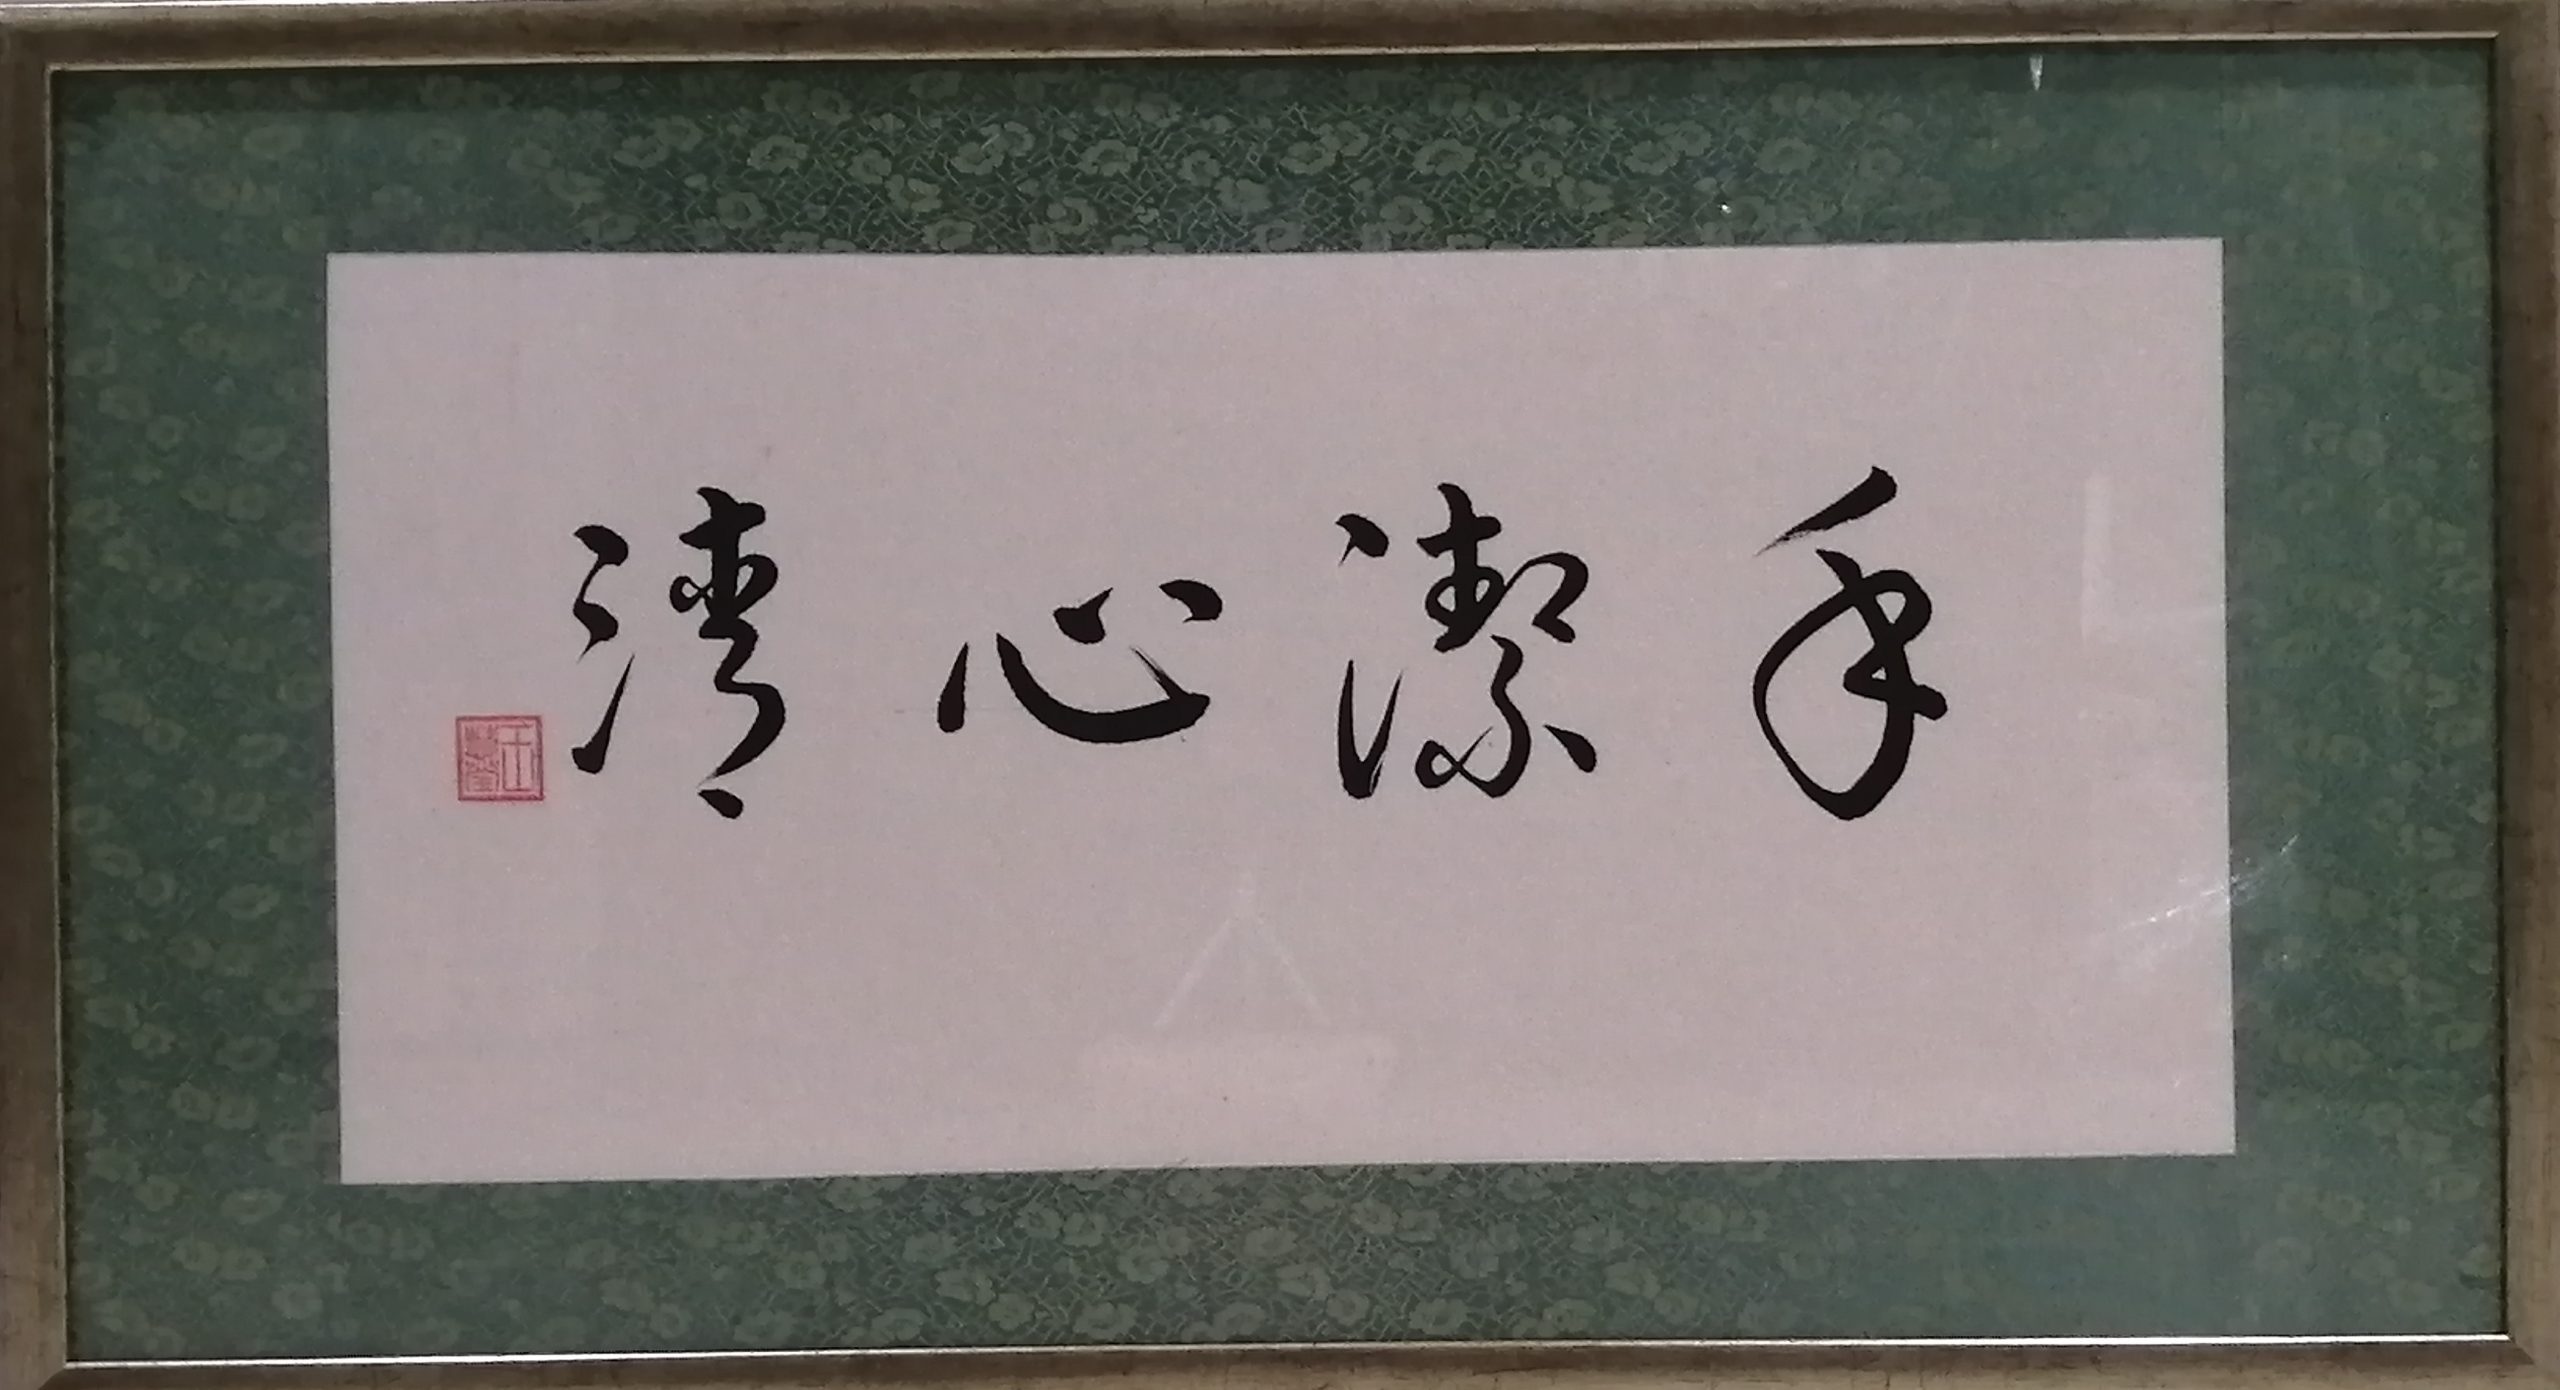 手潔心清